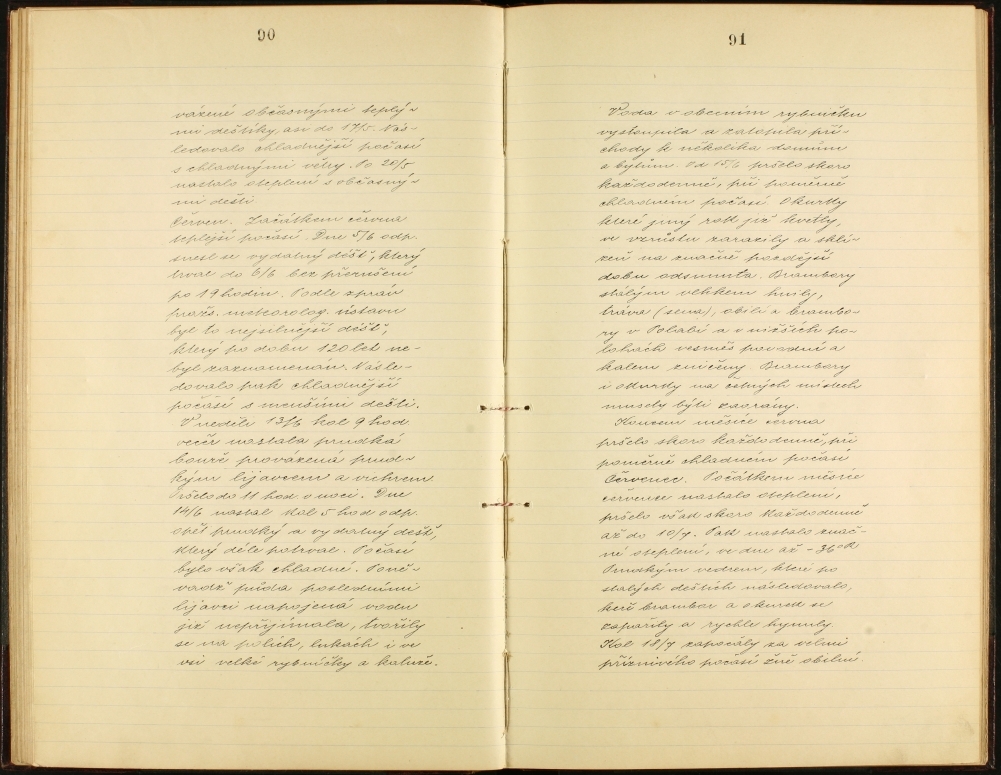 90
vázené občasnými teplý-
mi deštíky, asi do 17/5. Nás-
ledovalo chladnější počasí
s chladnými větry. Po 20/5
nastalo oteplení s občasný-
mi dešti
Červen. Začátkem června
teplejší počasí. Dne 5/6 odp.
snesl se vydatný déšť, který
trval do 6/6 bez přerušení
po 19 hodin. Podle zpráv
praž. meteorolog. ústavu
byl to nejsilnější déšť,
který po dobu 120 let ne-
byl zaznamenán. Násle-
dovalo pak chladnější
počasí s menšími dešti.
V neděli 13/6 kol 9 hod.
večer nastala prudká
bouře provázená prud-
kým lijavcem a vichrem
Pršelo do 11 hod v noci. Dne
14/6 nastal kol 5 hod odp.
opět prudký a vydatný déšť,
který déle potrval. Počasí
bylo však chladné. Poně-
vadž půda posledními
lijavci napojená vodu
již nepřijímala, tvořily
se na polích, lukách i ve
vsi velké rybníčky a kaluže.
91
Voda v obecním rybníčku
vystoupila a zatopila pří-
chody k několika domům
a bytům. Od 15/6 pršelo skoro
každodenně, při poměrně
chladném počasí Okurky
které jiný rok již kvetly,
ve vzrůstu zarazily a skli-
zeň na značně pozdější
dobu odsunuta. Brambory
stálým vlhkem hnily,
tráva (sena), obilí a brambo-
ry v Polabí a v nižších po-
lohách vesměs povodní a
kalem zničeny Brambory
i okurky na četných místech
musely býti zaorány.
Koncem měsíce června
pršelo skoro každodenně, při
poměrně chladném počasí
Červenec. Počátkem měsíce
července nastalo oteplení,
pršelo však skoro každodenně
až do 10/7. Pak nastalo znač-
né oteplení, ve dne až - 36° R
Prudkým vedrem, které po
stálých deštích následovalo,
keř brambor a okurek se
zapařily a rychle hynuly.
Kol 18/7 započaly za velmi
příznivého počasí žně obilní